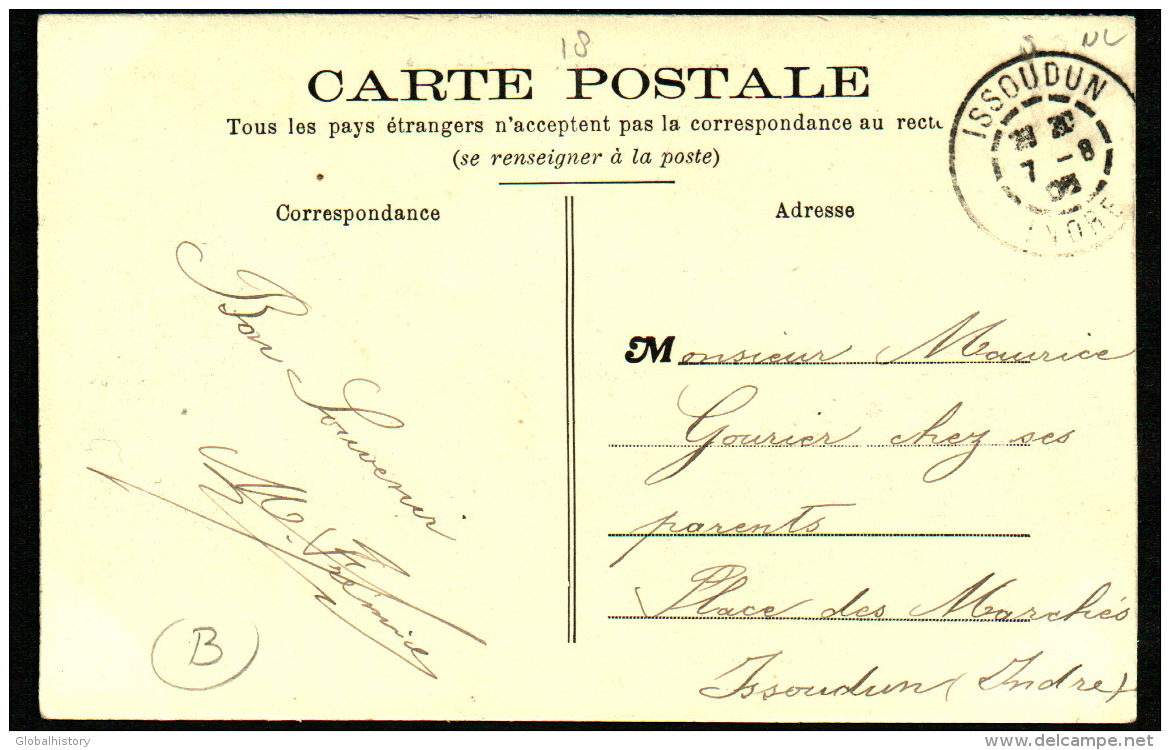 18
NL
CARTE POSTALE
Tous les pays étrangers n'acceptent pas la correspondance au recto
(se renseigner à la poste)
ISSOUDUN
7 - 8
INDRE
Correspondance
Adresse
Bon Souvenir
Monsieur Maurice
Gourier chez ses
parents
Place des Marchés
Issoudun (Indre)
B
Globalhistory
delcampe.net